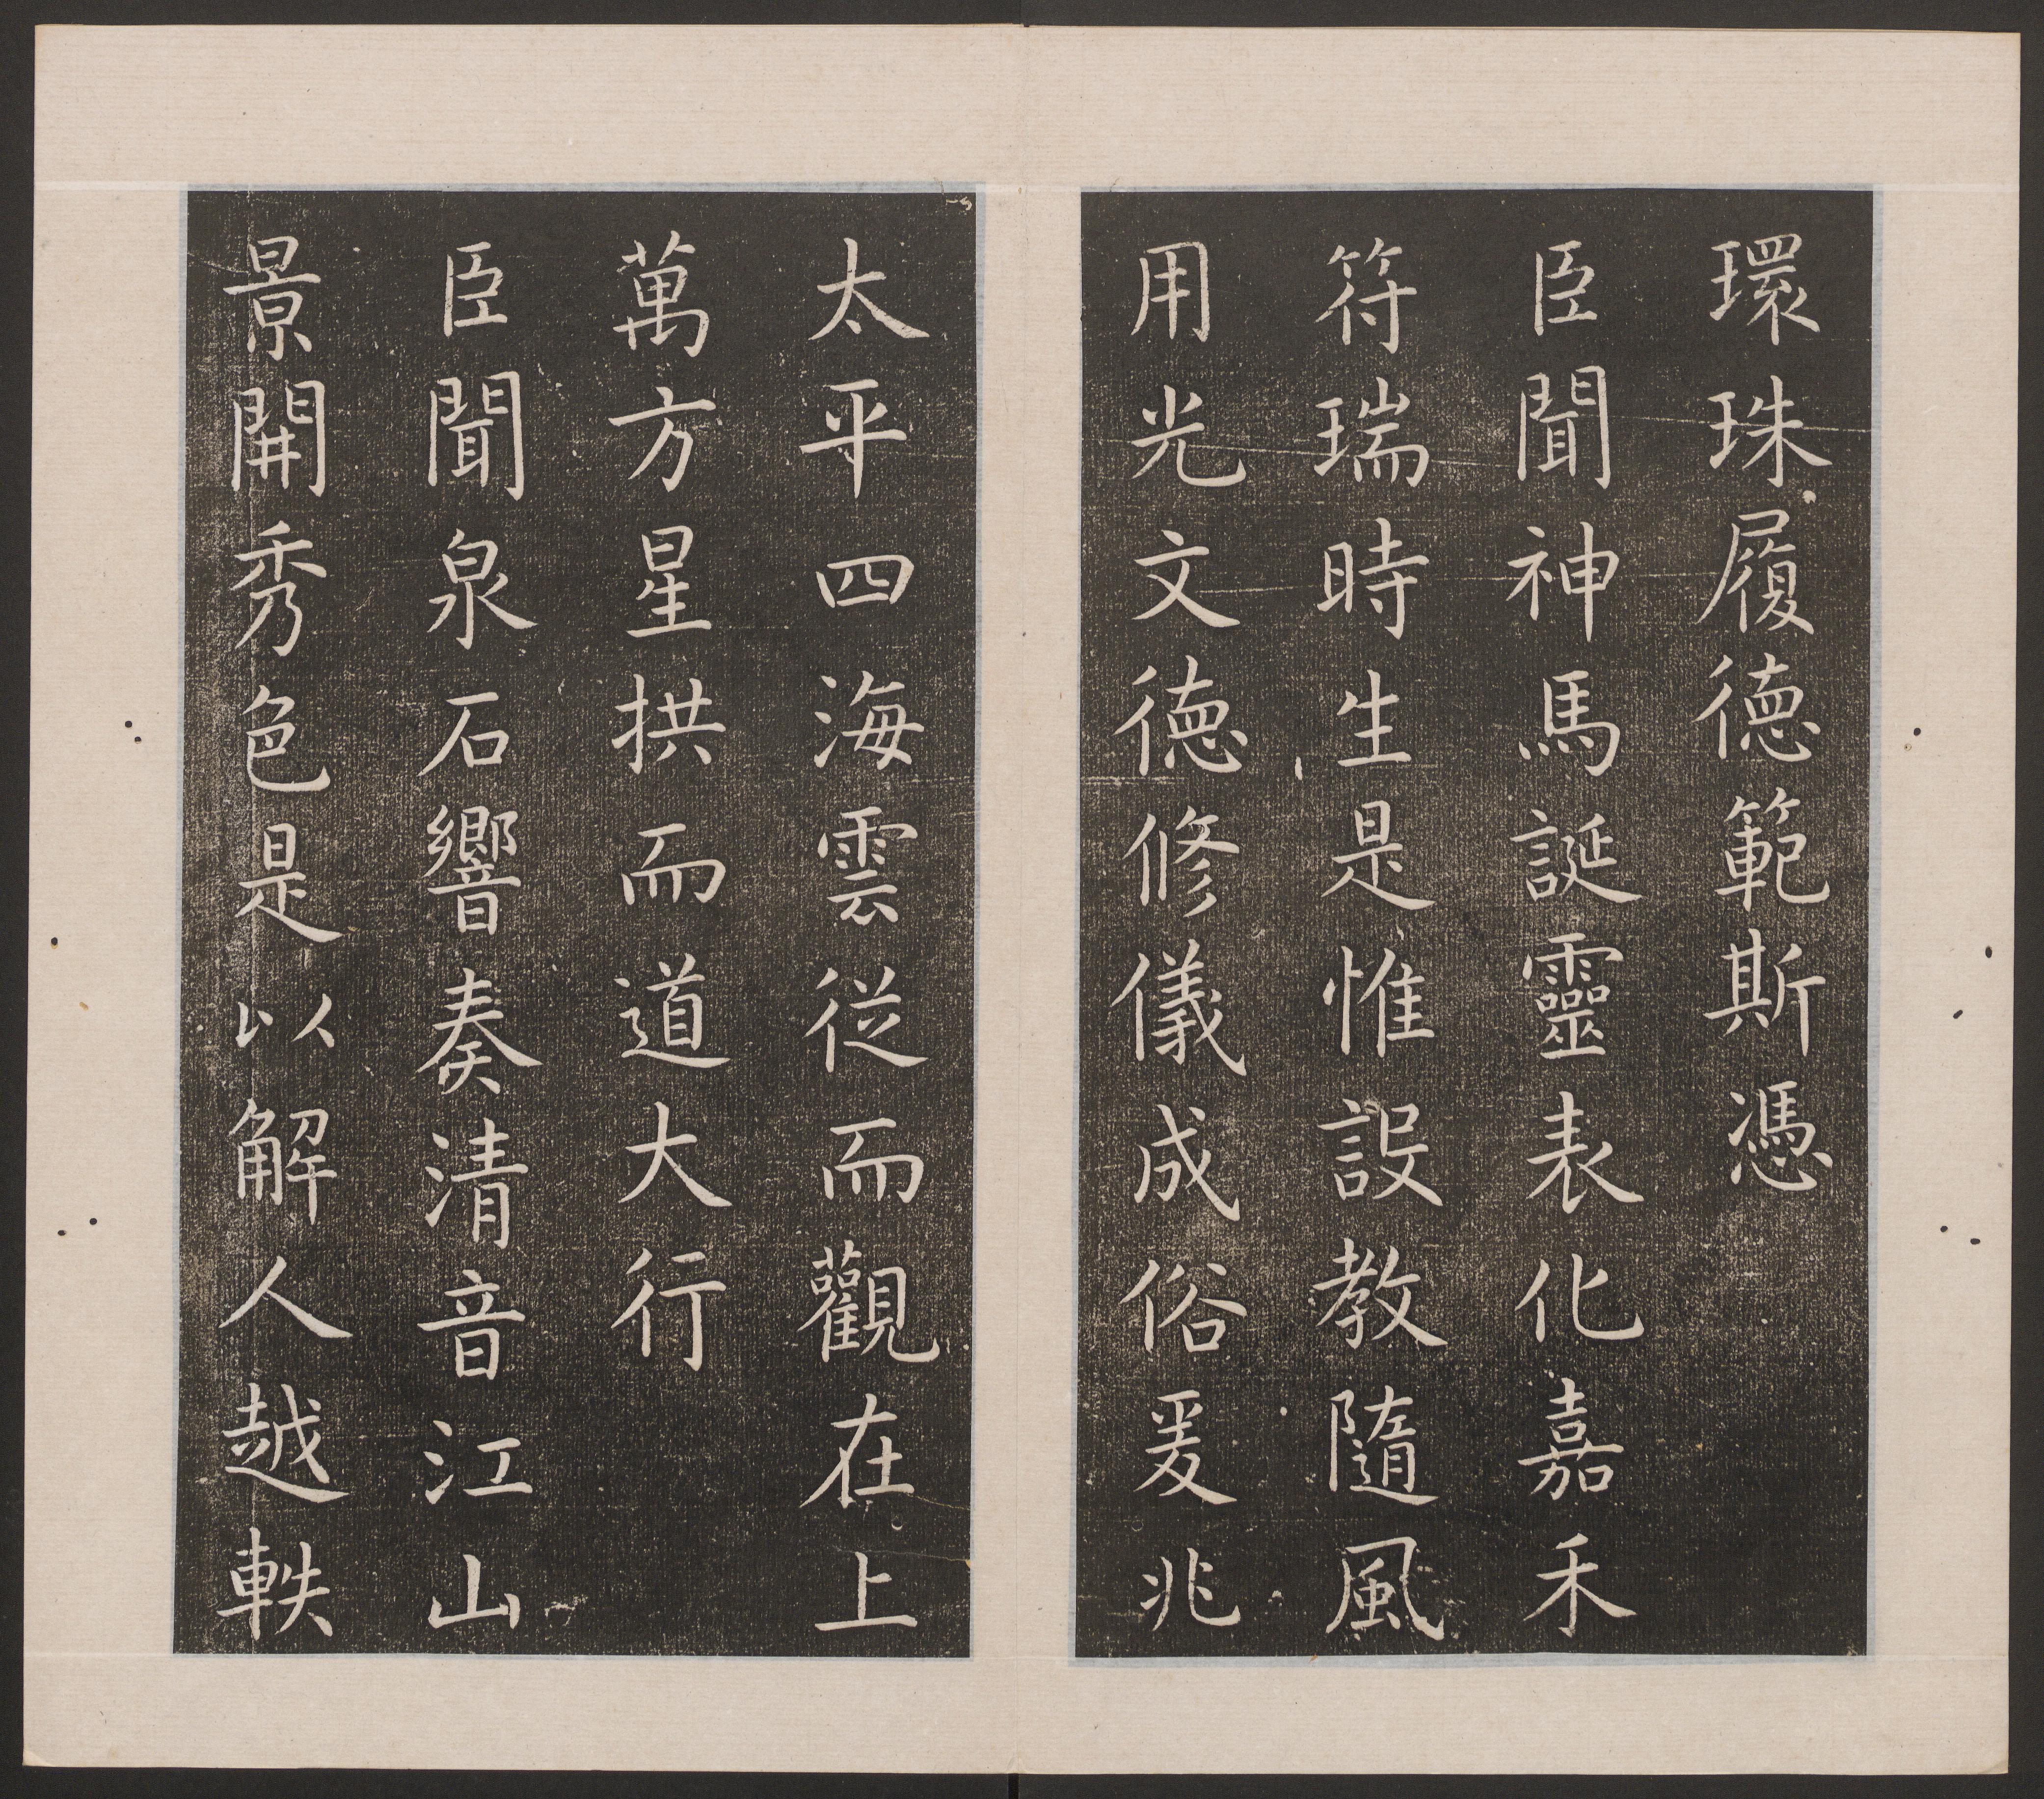 環珠履德範斯憑
臣聞神馬誕靈表化嘉禾
符瑞時生是惟設教隨風
用光文德修儀成俗爰兆
太平四海雲従而觀在上
萬方星拱而道大行
臣聞泉石響奏清音江山
景開秀色是以解人越軼